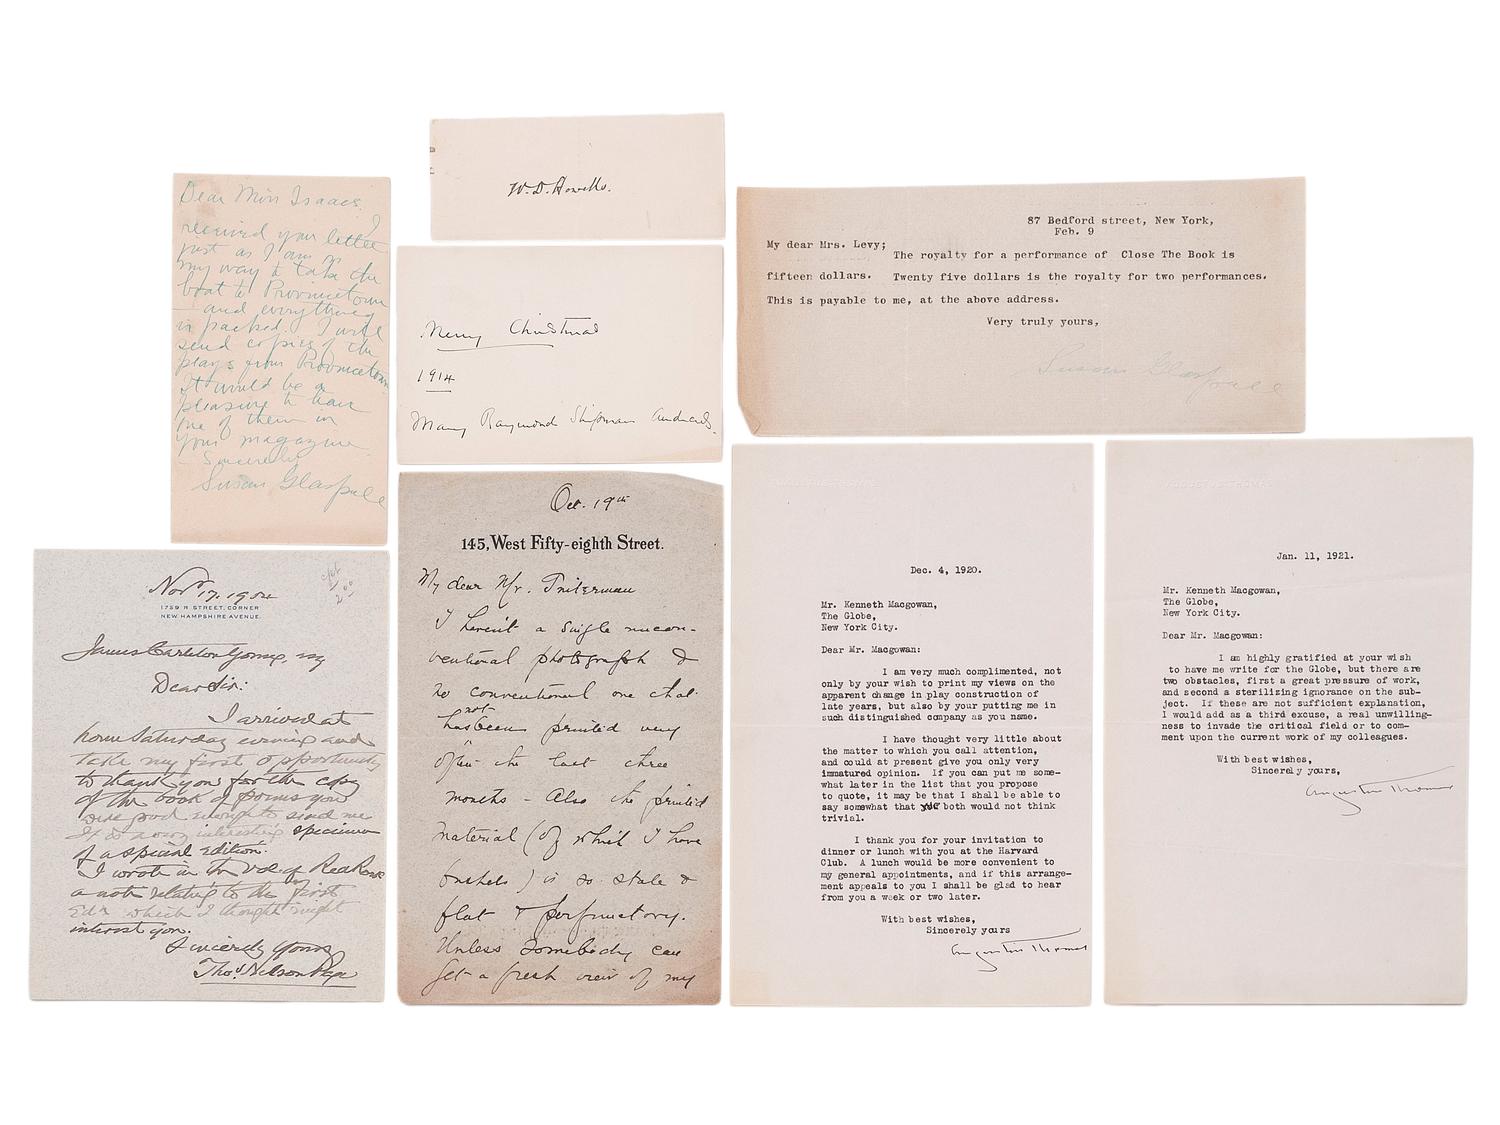 W. D. Howells.
Dear Miss Isaacs.
I
received your letter
just as I am on
my way to take the
boat to Provincetown
- and everything
is packed. I will
send copies of the
plays from Provincetown.
It would be a
pleasure to have
one of them in
your magazine.
Sincerely
Susan Glaspell
Merry Christmas
1914
Mary Raymond Shipman Andrews.
87 Bedford street, New York,
Feb. 9
My dear Mrs. Levy;
The royalty for a performance of Close The Book is
fifteen dollars. Twenty five dollars is the royalty for two performances.
This is payable to me, at the above address.
Very truly yours,
Susan Glaspell
Nov 17. 1904
1759 R STREET, CORNER
NEW HAMPSHIRE AVENUE.
James Carleton Young, Esq
Dear Sir:
I arrived at
home Saturday evening and
take my first opportunity
to thank you for the copy
of the book of poems you
were good enough to send me
It is a very interesting specimen
of a special edition.
I wrote in the vol. of Red Rock
a note relating to the first
Edn which I thought might
interest you.
Sincerely yours
Thos. Nelson Page
Oct. 19th
145, West Fifty-eighth Street.
My dear Mr.
I haven't a single uncon-
ventional photograph &
no conventional one that
has not been printed very
often the last three
months - Also the printed
material (of which I have
bushels) is so stale &
flat & perfunctory.
Unless somebody can
get a fresh view of my
Dec. 4, 1920.
Mr. Kenneth Macgowan,
The Globe,
New York City.
Dear Mr. Macgowan:
I am very much complimented, not
only by your wish to print my views on the
apparent change in play construction of
late years, but also by your putting me in
such distinguished company as you name.
I have thought very little about
the matter to which you call attention,
and could at present give you only very
immatured opinion. If you can put me some-
what later in the list that you propose
to quote, it may be that I shall be able to
say somewhat that we both would not think
trivial.
I thank you for your invitation to
dinner or lunch with you at the Harvard
Club. A lunch would be more convenient to
my general appointments, and if this arrange-
ment appeals to you I shall be glad to hear
from you a week or two later.
With best wishes,
Sincerely yours
Augustus Thomas
AUGUSTUS THOMAS
Jan. 11, 1921.
Mr. Kenneth Macgowan,
The Globe,
New York City.
Dear Mr. Macgowan:
I am highly gratified at your wish
to have me write for the Globe, but there are
two obstacles, first a great pressure of work,
and second a sterilizing ignorance on the sub-
ject. If these are not sufficient explanation,
I would add as a third excuse, a real unwilling-
ness to invade the critical field or to com-
ment upon the current work of my colleagues.
With best wishes,
Sincerely yours,
Augustus Thomas